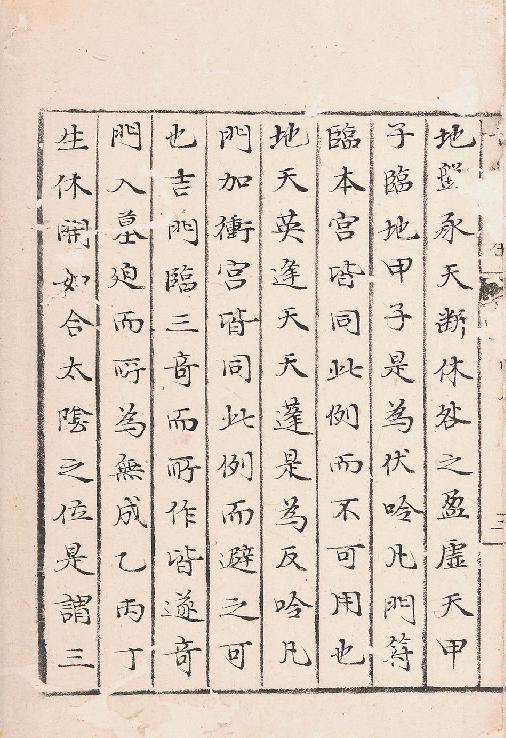 地盤承天断休咎之盈虛天甲
子臨地甲子是為伏吟凡門符
臨本宮皆同此例而不可用也
地天英逢天天蓬是為反吟凡
門加衝宮皆同此例而避之可
也吉門臨三竒而所作皆遂竒
門入墓廹而所為無成乙丙丁
生休開如合太陰之位是謂三